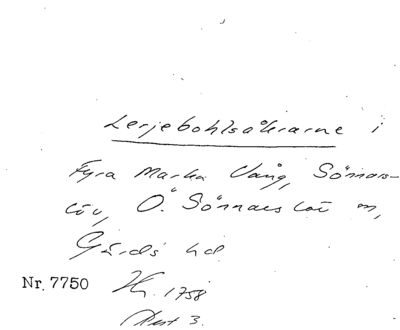 Lerjebohlsåkrarne i
Fyra Marka Vång, Sönnars-
löv, Ö. Sönnarslöv sn,
Gärds hd
Nr. 7750 Hr. 1758
Akt 3.